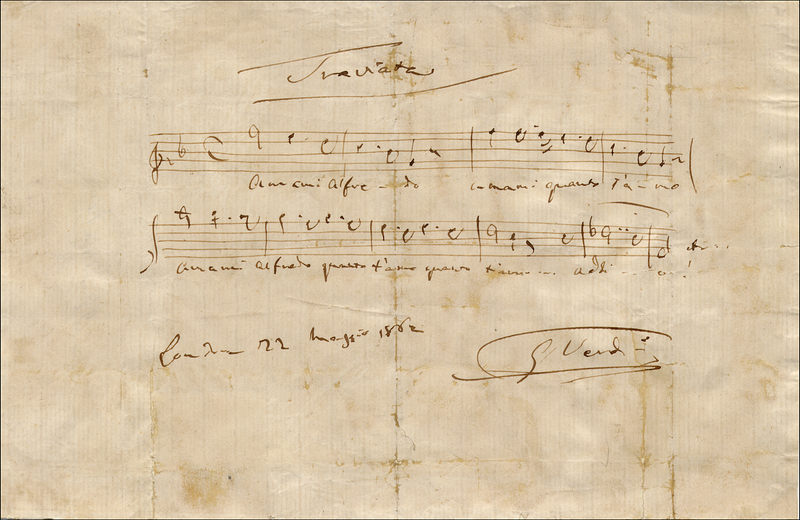 Traviata
Amami Alfre - do amami quanto t'a - mo
amami Alfredo quanto t'amo quanto t'amo ... addi - o!
London 22 Maggio 1862
G Verdi